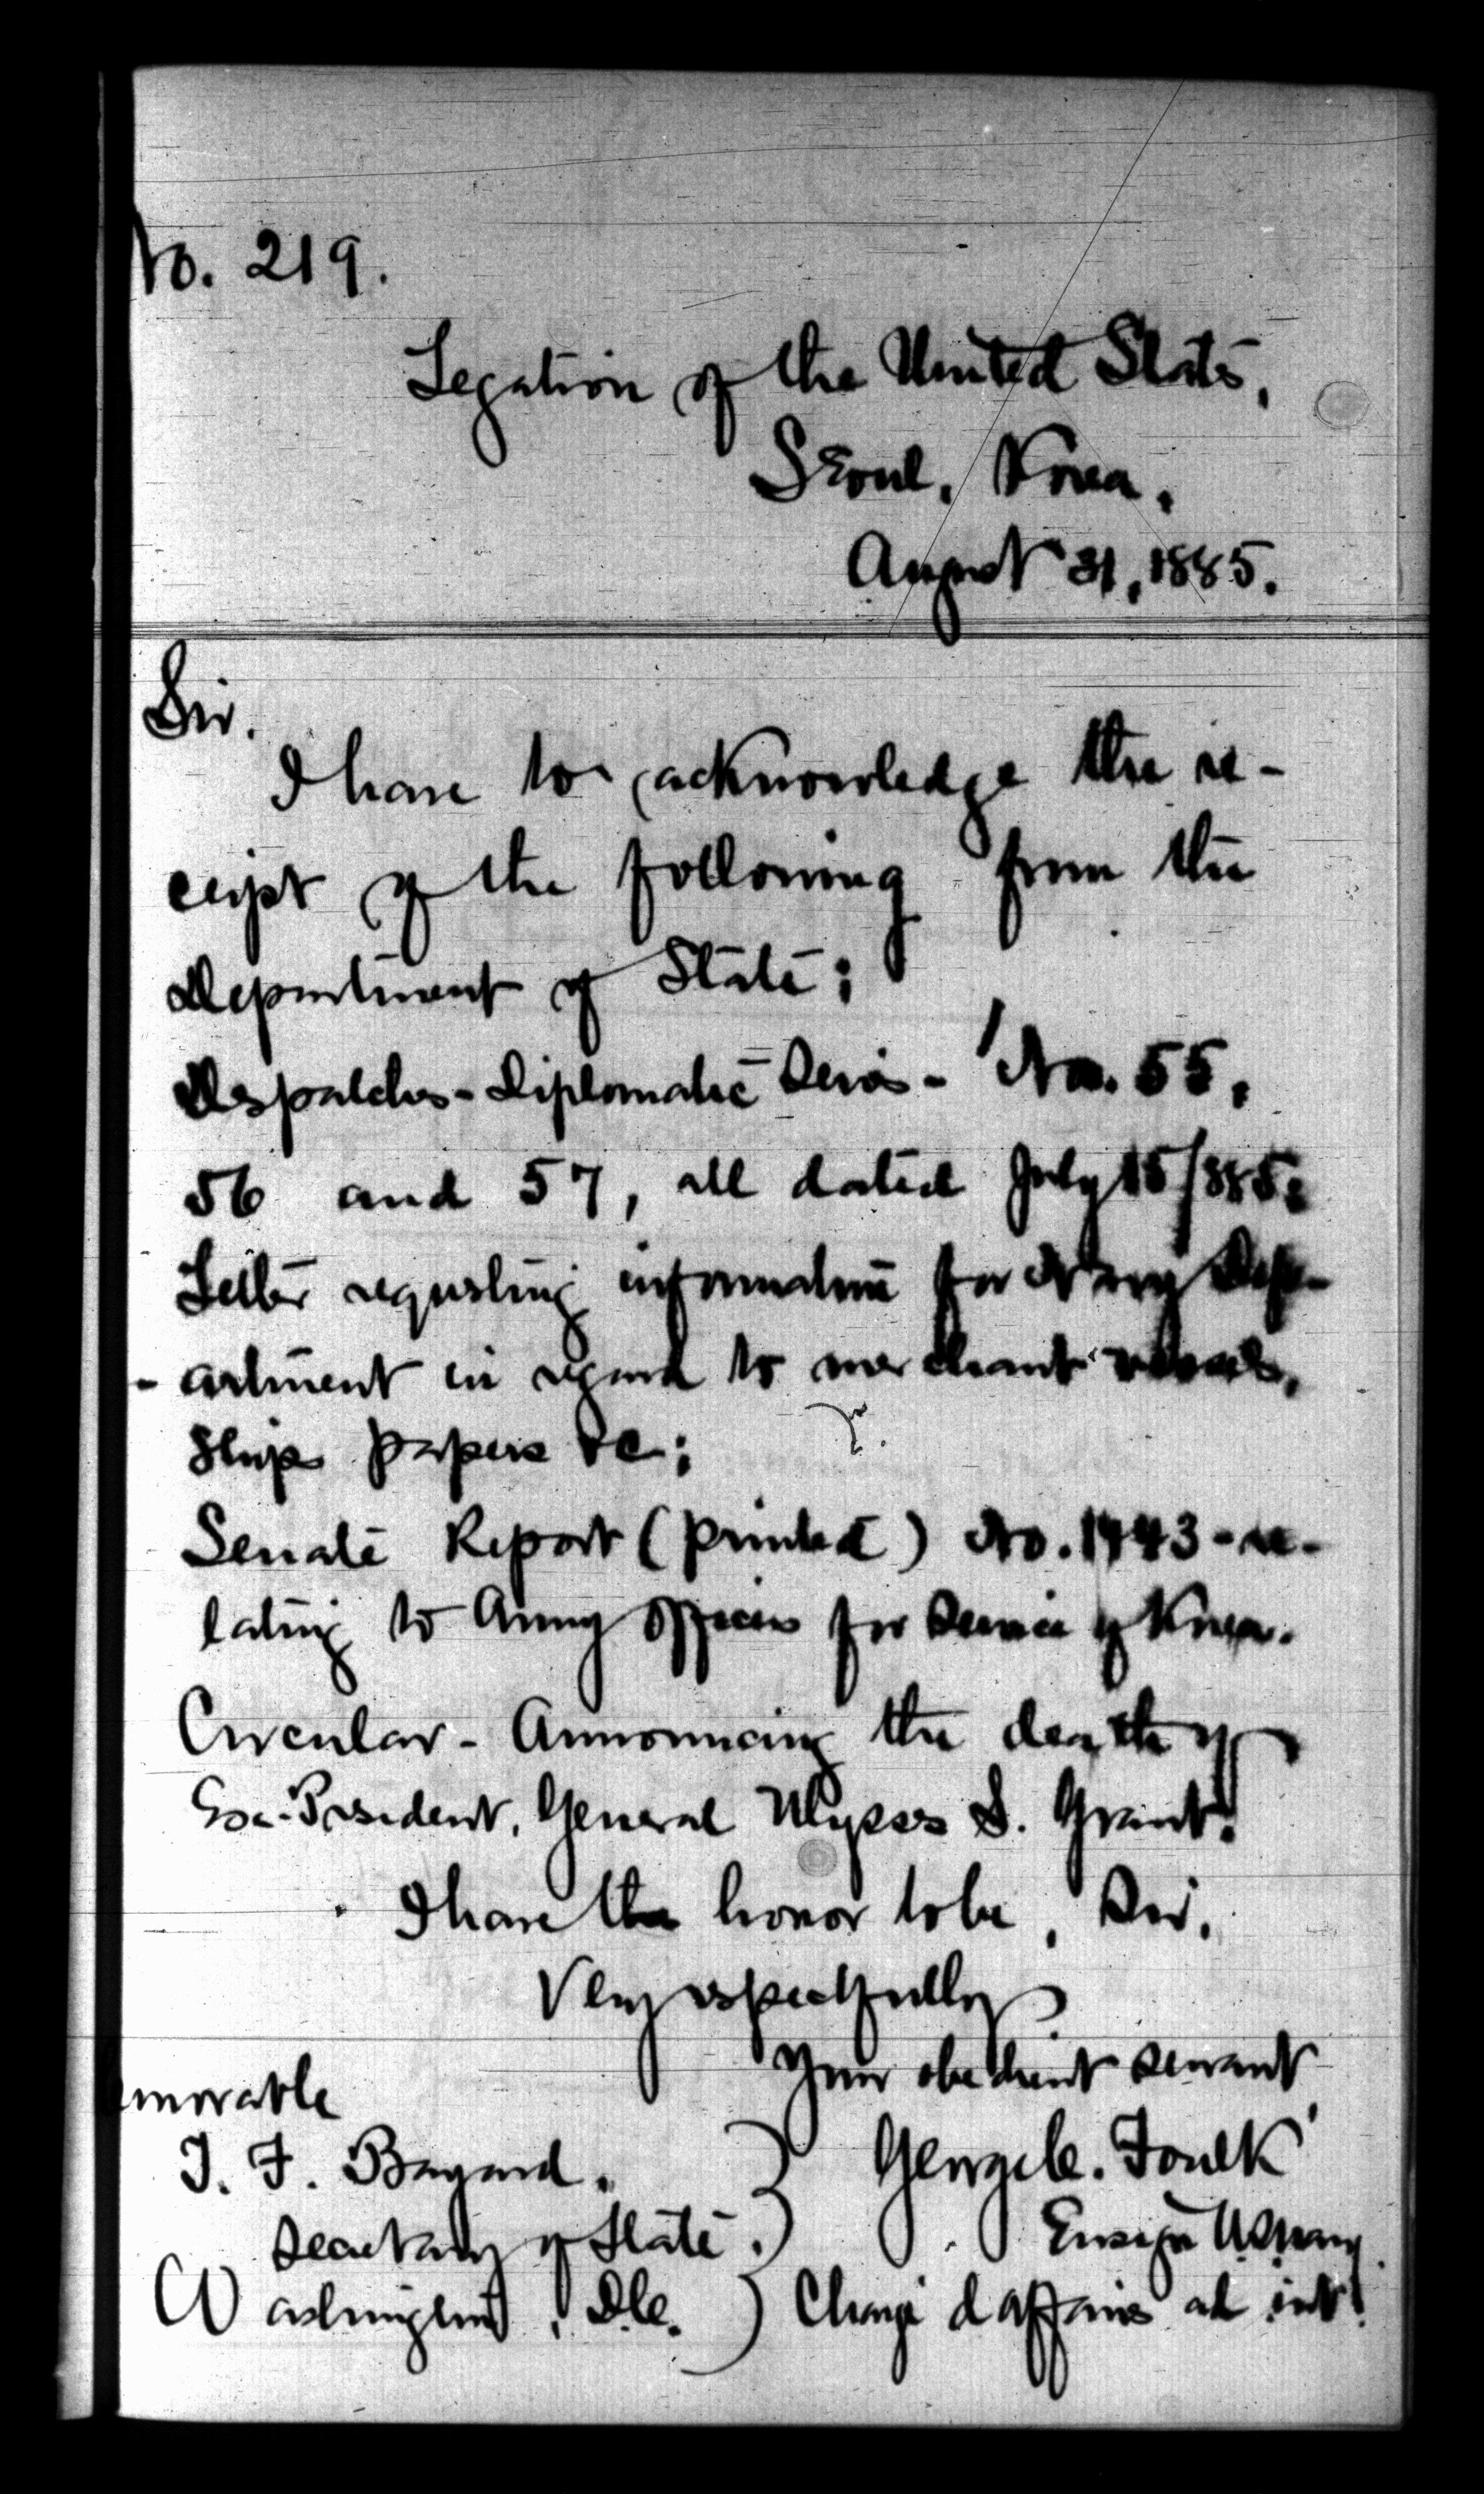 No. 219.
Legation of the United States,
Seoul, Korea,
August 31, 1885.
Sir.
I have to acknowledge the re-
ceipt of the following from the
Department of State;
Despatches - Diplomatic Series - Nos. 55,
56 and 57, all dated July 15/885;
Letter requesting information for Navy Dep-
- artment in regard to merchant vessels,
Ships papers &c;
Senate Report (printed) No. 1443 - re-
lating to Army officers for service of Korea.
Circular - Announcing the death of
Ex-President, General Ulysses S. Grant.
I have the honor to be, Sir,
Very respectfully
Your obedient servant
onorable
T. F. Bayard,
George C. Foulk
Secretary of State.
Ensign U.S. Navy
Washington, D.C.
Chargé d'affaires ad int.